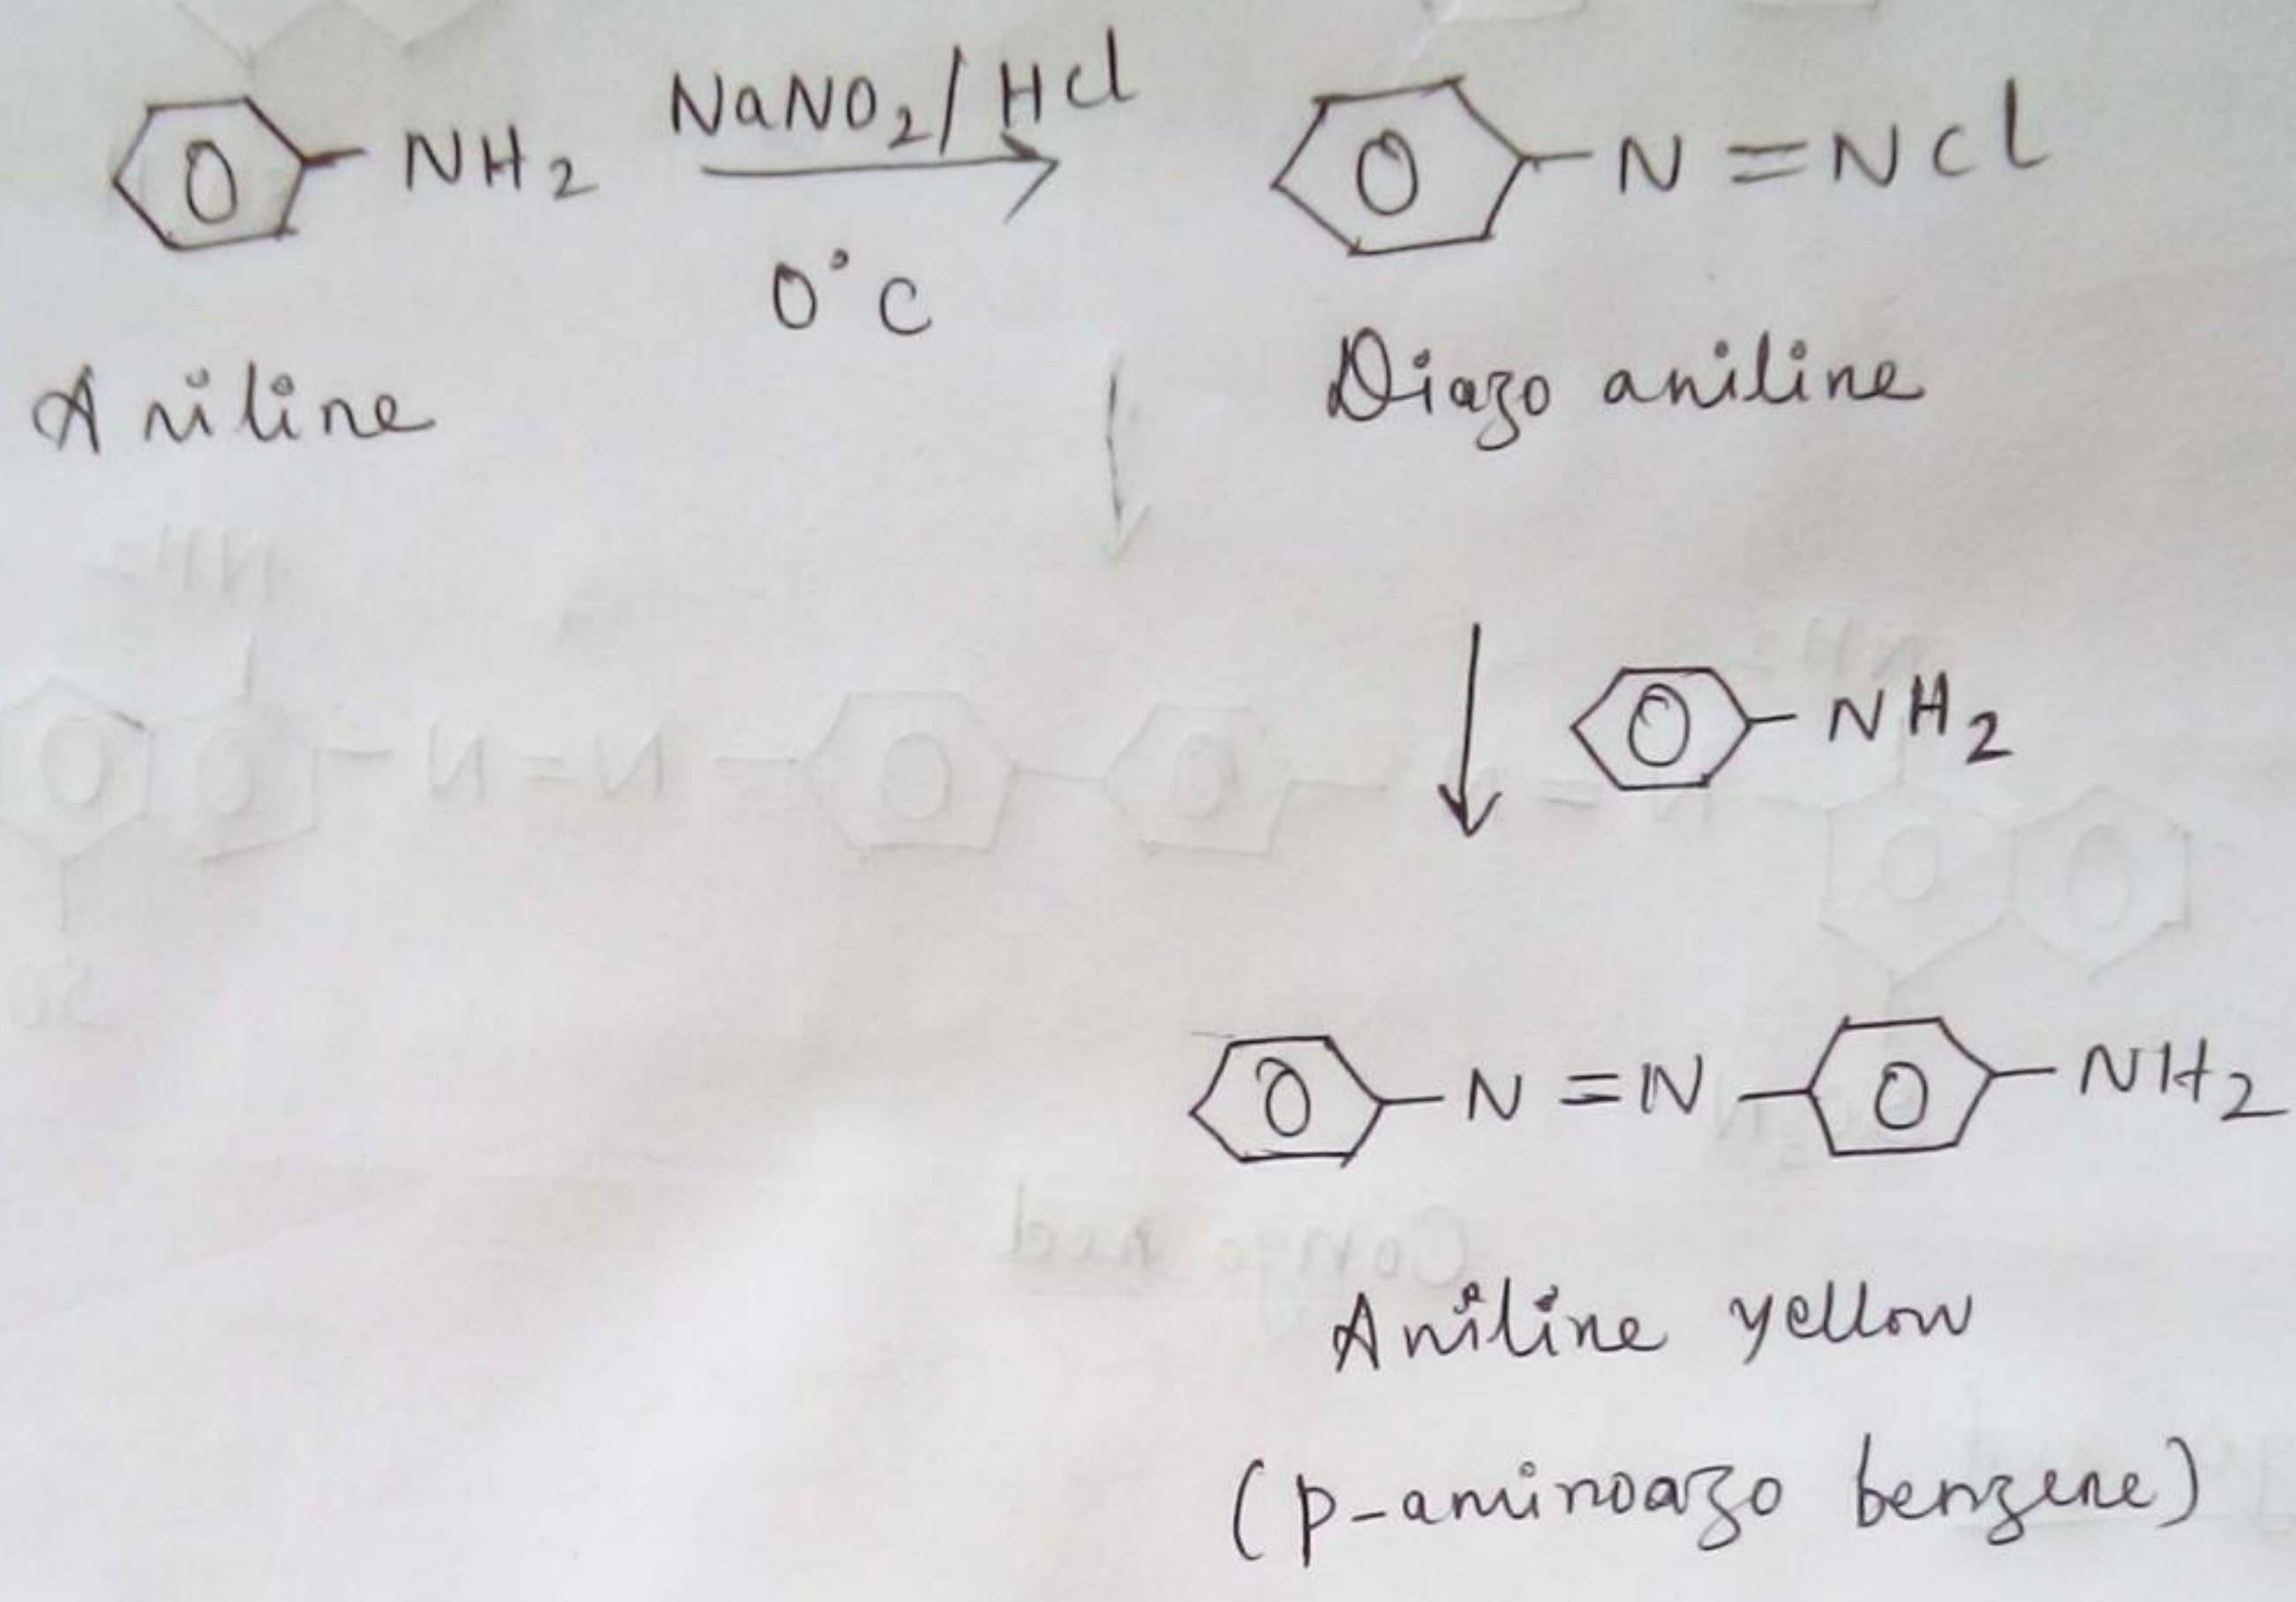 NH₂ NaNO₂/HCl N=NCl
0°C
Aniline Diazo aniline
NH₂
N=N NH₂
Aniline yellow
(p-aminoazo benzene)